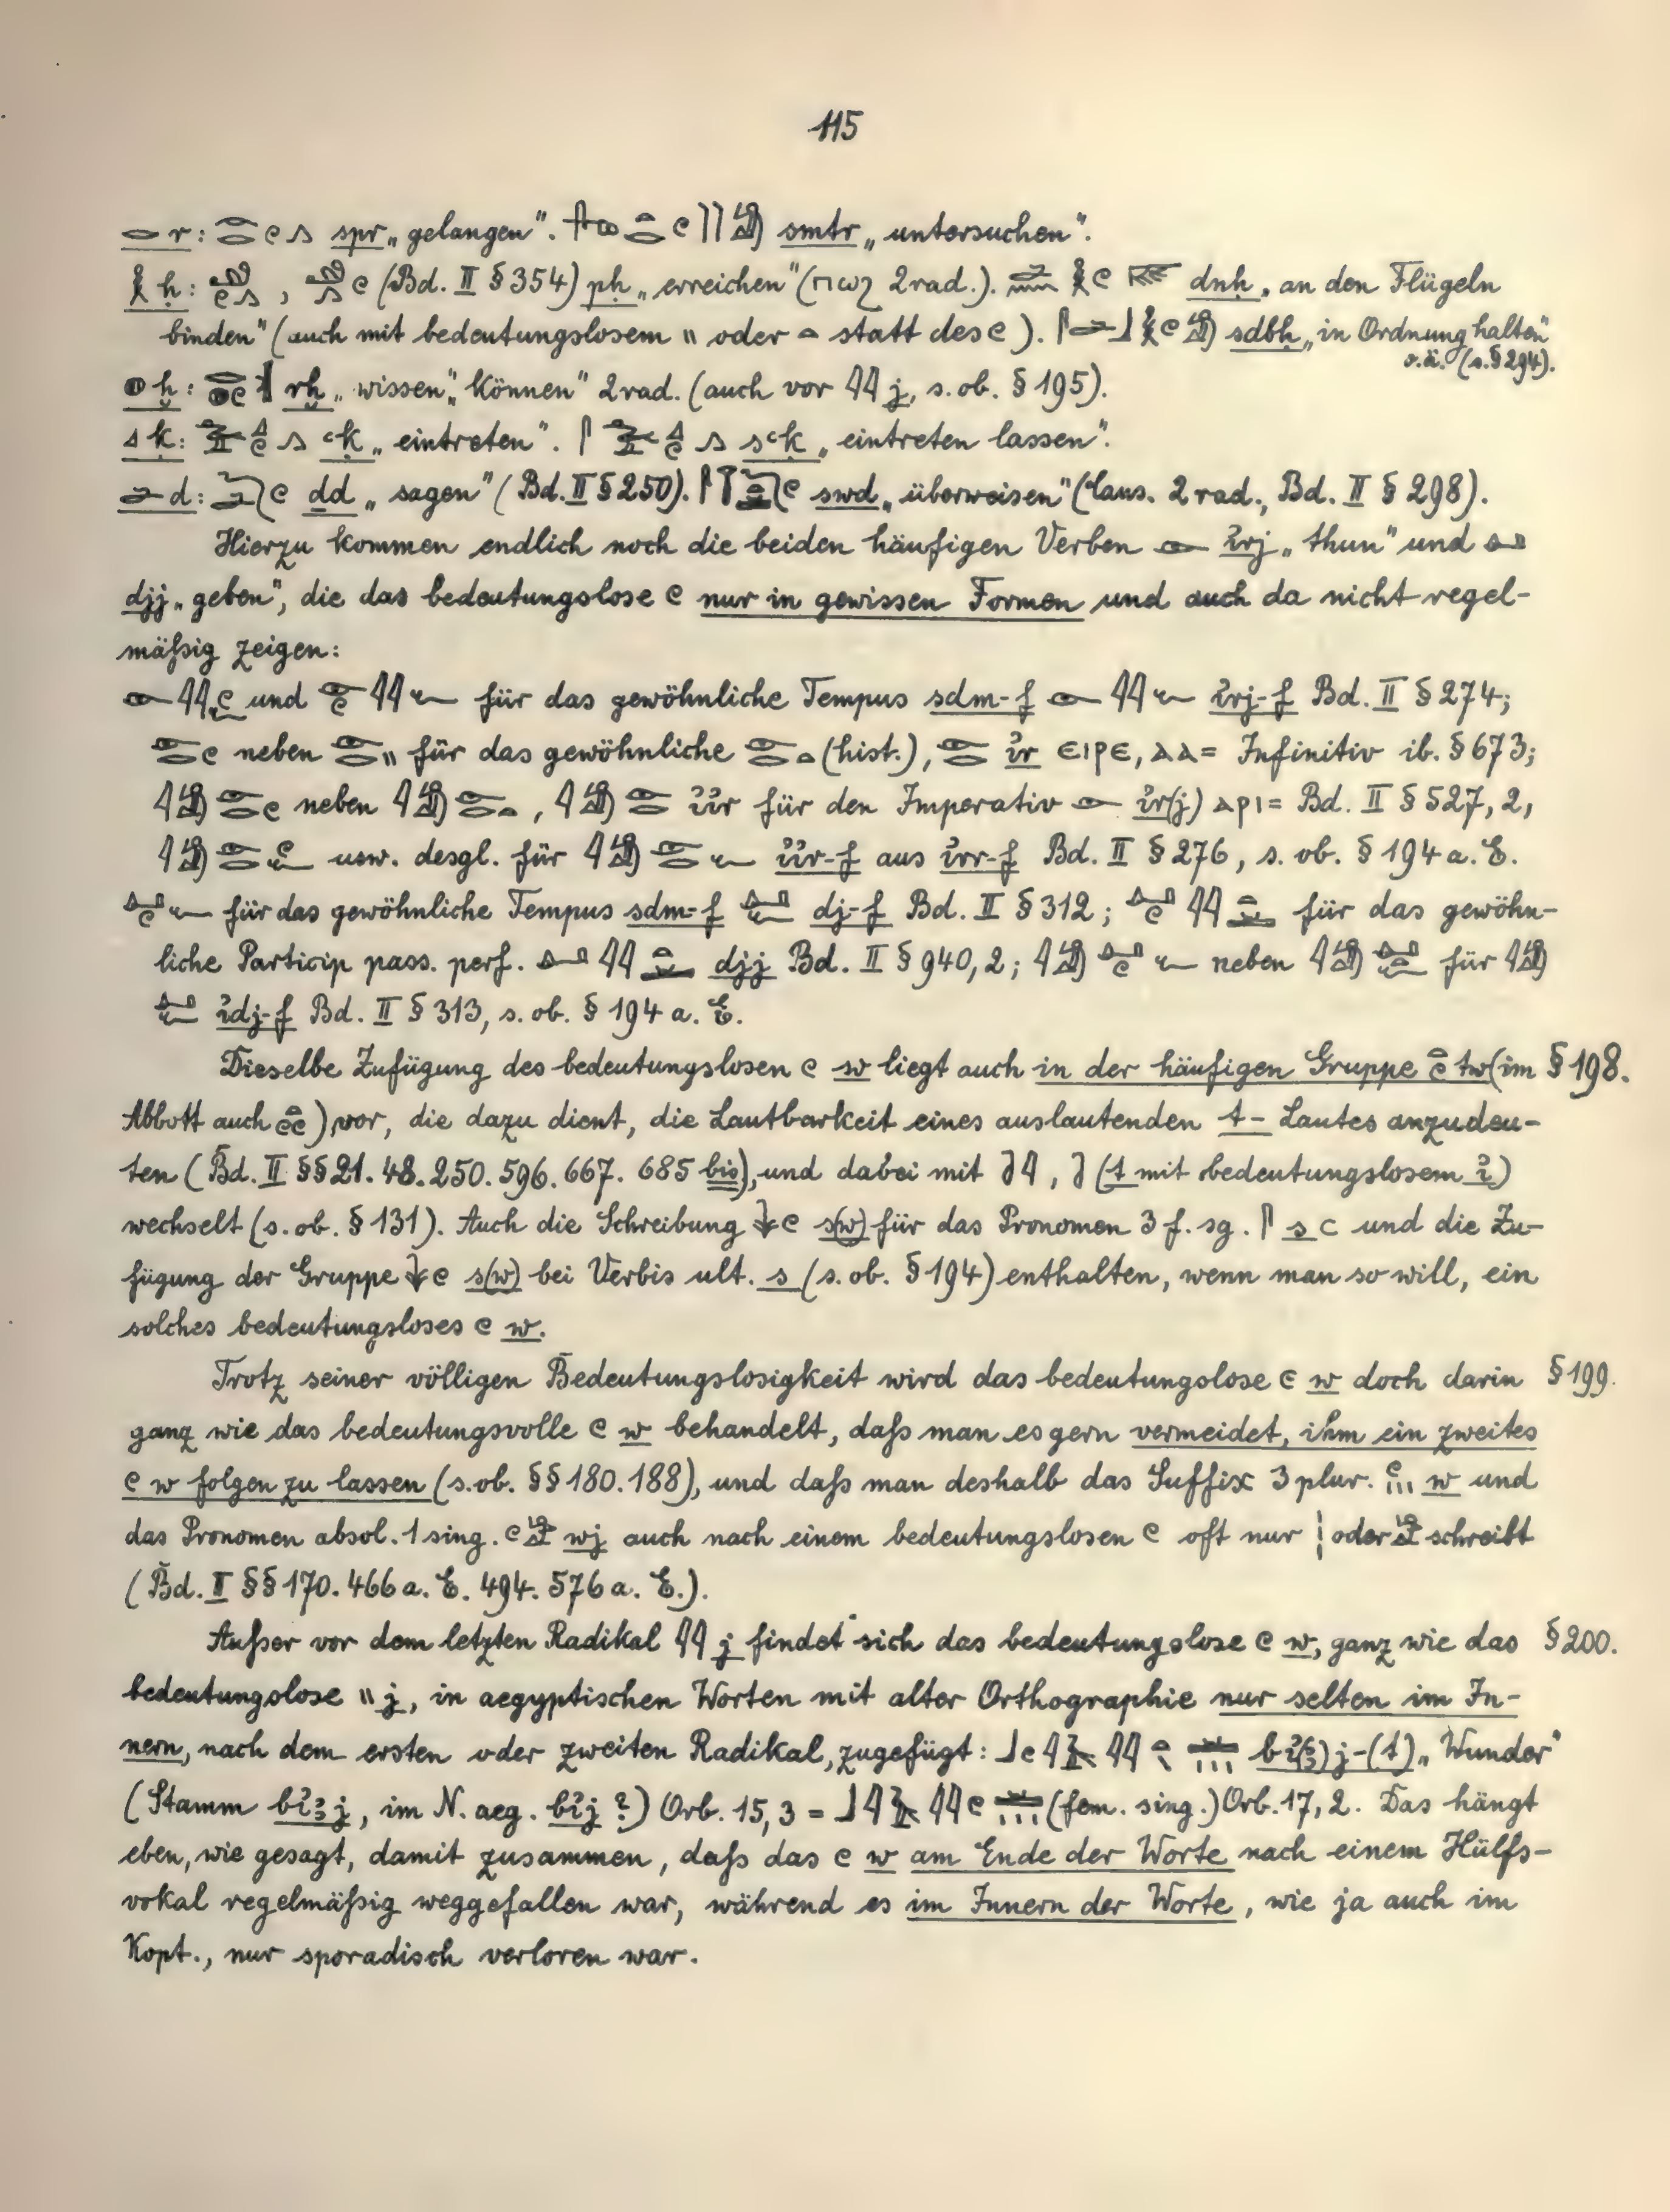 115
r: spr „gelangen“. smtr „untersuchen“.
ḥ: , (Bd. II § 354) pḥ „erreichen“ (ⲡⲱϩ 2rad.). dnḥ „an den Flügeln
binden“ (auch mit bedeutungslosem \\ oder statt des ). sdbḥ „in Ordnung halten“
o.ä. (s. § 294).
ḫ: rḫ „wissen“, „können“ 2rad. (auch vor j, s. ob. § 195).
ḳ: ꜥḳ „eintreten“. sꜥḳ „eintreten lassen“.
d: dd „sagen“ (Bd. II § 250). swd „überweisen“ (Caus. 2rad., Bd. II § 298).
Hierzu kommen endlich noch die beiden häufigen Verben irj „thun“ und
djj „geben“, die das bedeutungslose nur in gewissen Formen und auch da nicht regel-
mäßig zeigen:
und für das gewöhnliche Tempus sdm-f irj-f Bd. II § 274;
neben für das gewöhnliche (hist.), ir ⲉⲓⲣⲉ, ⲁⲁ= Infinitiv ib. § 673;
neben , iir für den Imperativ ir(j) ⲁⲣⲓ= Bd. II § 527, 2,
usw. desgl. für iir-f aus irr-f Bd. II § 276, s. ob. § 194 a. E.
für das gewöhnliche Tempus sdm-f dj-f Bd. II § 312; für das gewöhn-
liche Particip pass. perf. djj Bd. II § 940, 2; neben für
idj-f Bd. II § 313, s. ob. § 194 a. E.
Dieselbe Zufügung des bedeutungslosen w liegt auch in der häufigen Gruppe tw (im § 198.
Abbott auch ) vor, die dazu dient, die Lautbarkeit eines auslautenden t-Lautes anzudeu-
ten (Bd. II §§ 21. 48. 250. 596. 667. 685 bis), und dabei mit , (t mit bedeutungslosem i)
wechselt (s. ob. § 131). Auch die Schreibung s(w) für das Pronomen 3 f. sg. s ⲥ und die Zu-
fügung der Gruppe s(w) bei Verbis ult. s (s. ob. § 194) enthalten, wenn man so will, ein
solches bedeutungsloses w.
Trotz seiner völligen Bedeutungslosigkeit wird das bedeutungslose w doch darin § 199.
ganz wie das bedeutungsvolle w behandelt, daß man es gern vermeidet, ihm ein zweites
w folgen zu lassen (s. ob. §§ 180. 188), und daß man deshalb das Suffix 3 plur. w und
das Pronomen absol. 1 sing. wj auch nach einem bedeutungslosen oft nur oder schreibt
(Bd. II §§ 170. 466 a. E. 494. 576 a. E.).
Außer vor dem letzten Radikal j findet sich das bedeutungslose w, ganz wie das § 200.
bedeutungslose \\ j, in aegyptischen Worten mit alter Orthographie nur selten im In-
nern, nach dem ersten oder zweiten Radikal, zugefügt: bi(ꜣ)j-(t) „Wunder“
(Stamm biꜣj, im N. aeg. bij ?) Orb. 15, 3 = (fem. sing.) Orb. 17, 2. Das hängt
eben, wie gesagt, damit zusammen, daß das w am Ende der Worte nach einem Hülfs-
vokal regelmäßig weggefallen war, während es im Innern der Worte, wie ja auch im
Kopt., nur sporadisch verloren war.